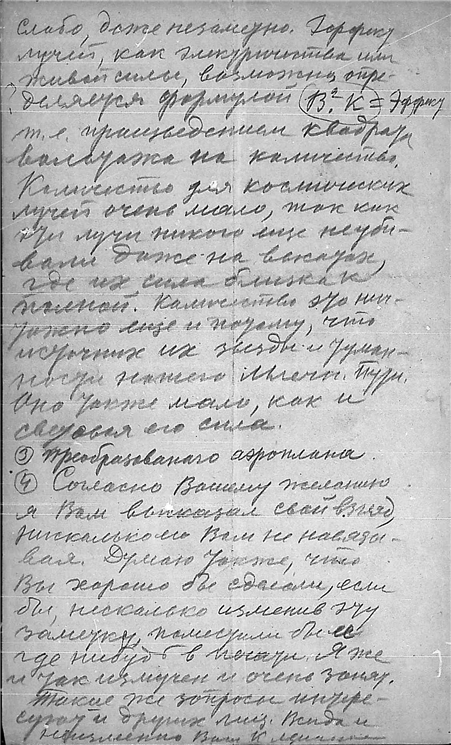 слабо, даже незаметно. Эффект
лучей, как электричества или
живой силы, возможно, опре-
деляется формулой (В². К = Эффект
т. е. произведением квадрата
вольтажа на количество.
Количество для космических
лучей очень мало, так как
эти лучи никого еще не уби-
вали даже на высотах,
где их сила близка к
полной. Количество это нич-
тожно еще и потому, что
источник их звезды и туман-
ности нашего Млечн. Пути.
Оно также мало, как и
световая его сила.
③ Преобразованого аэроплана.
④ Согласно Вашему желанию
я Вам высказал свой взгляд,
нисколько его Вам не навязы-
вая. Думаю также, что
Вы хорошо бы сделали, если
бы, несколько изменив эту
заметку, поместили бы ее
где нибудь в печати. Я же
и так измучен и очень занят.
Такие же вопросы интере-
суют и других лиц.
неизменно Вам К.